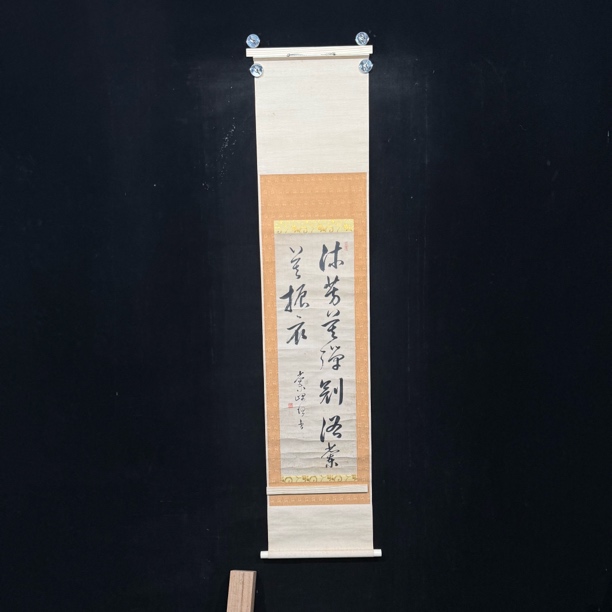 沐芳莫彈冠浴蘭
莫振衣